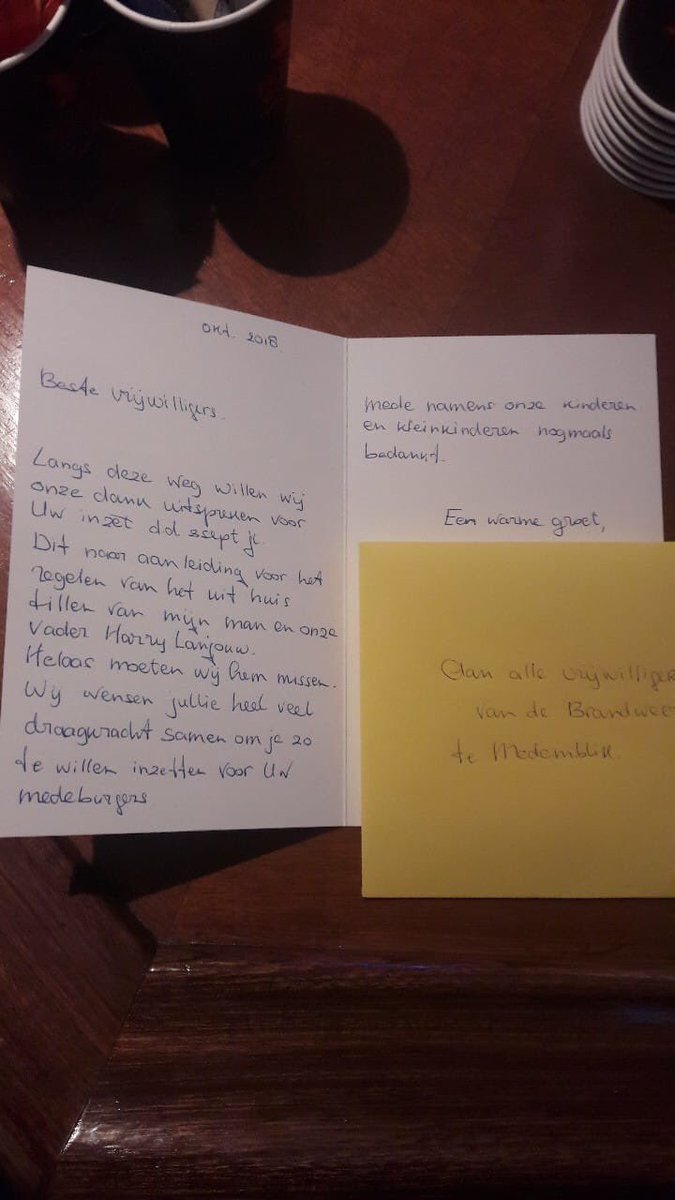 okt. 2018.
Beste vrijwilligers.
Langs deze weg willen wij
onze dank uitspreken voor
Uw inzet d.d. sept jl.
Dit naar aanleiding voor het
regelen van het uit huis
tillen van mijn man en onze
vader Harry Lanjouw.
Helaas moeten wij hem missen.
Wij wensen jullie heel veel
draagkracht samen om je zo
te willen inzetten voor Uw
medeburgers
Mede namens onze kinderen
en kleinkinderen nogmaals
bedankt.
Een warme groet,
Aan alle vrijwilliger
van de Brandwee
te Medemblik.